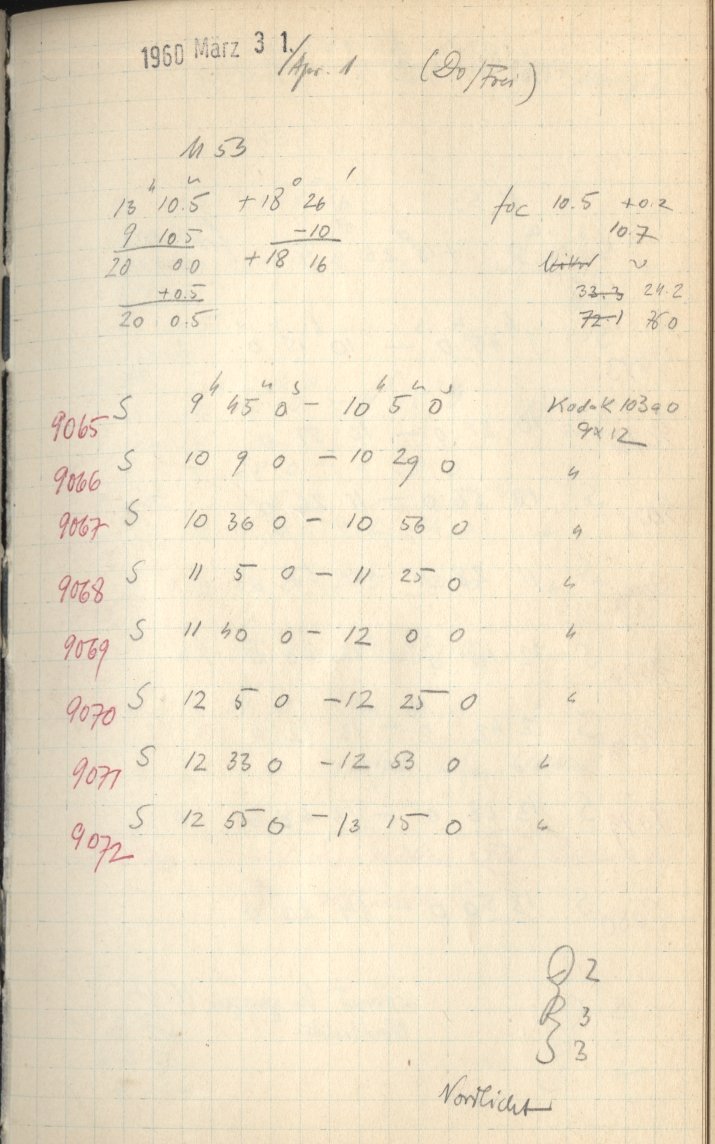 1960 März 31./Apr. 1 (Do/Frei)
M 53
13ʰ 10.5ᵐ +18° 26′ foc 10.5 +0.2
9 10.5 -10 10.7
20 00 +18 16
+0.5 33.3 24.2
20 0.5 72.1 76.0
9065 S 9ʰ 45ᵐ 0ˢ - 10ʰ 5ᵐ 0ˢ Kodak 103a0
9x12
9066 S 10 9 0 - 10 29 0 "
9067 S 10 36 0 - 10 56 0 "
9068 S 11 5 0 - 11 25 0 "
9069 S 11 40 0 - 12 0 0 "
9070 S 12 5 0 - 12 25 0 "
9071 S 12 33 0 - 12 53 0 "
9072 S 12 55 0 - 13 15 0 "
2
R 3
S 3
Nordlicht